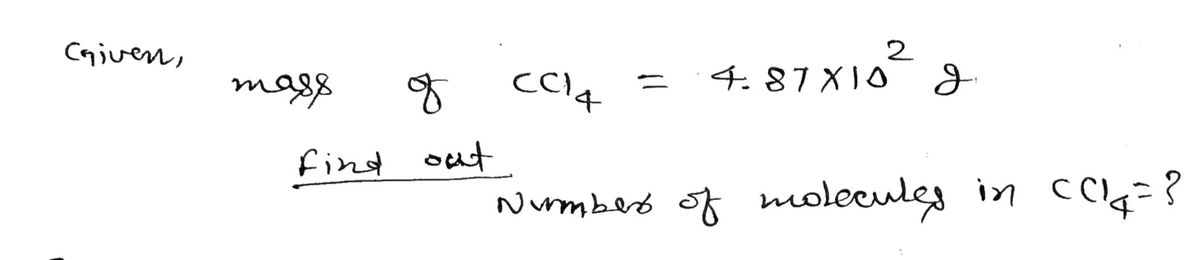 Given,
mass of CCl4 = 4.87X10² g.
find out
Number of molecules in CCl4=?